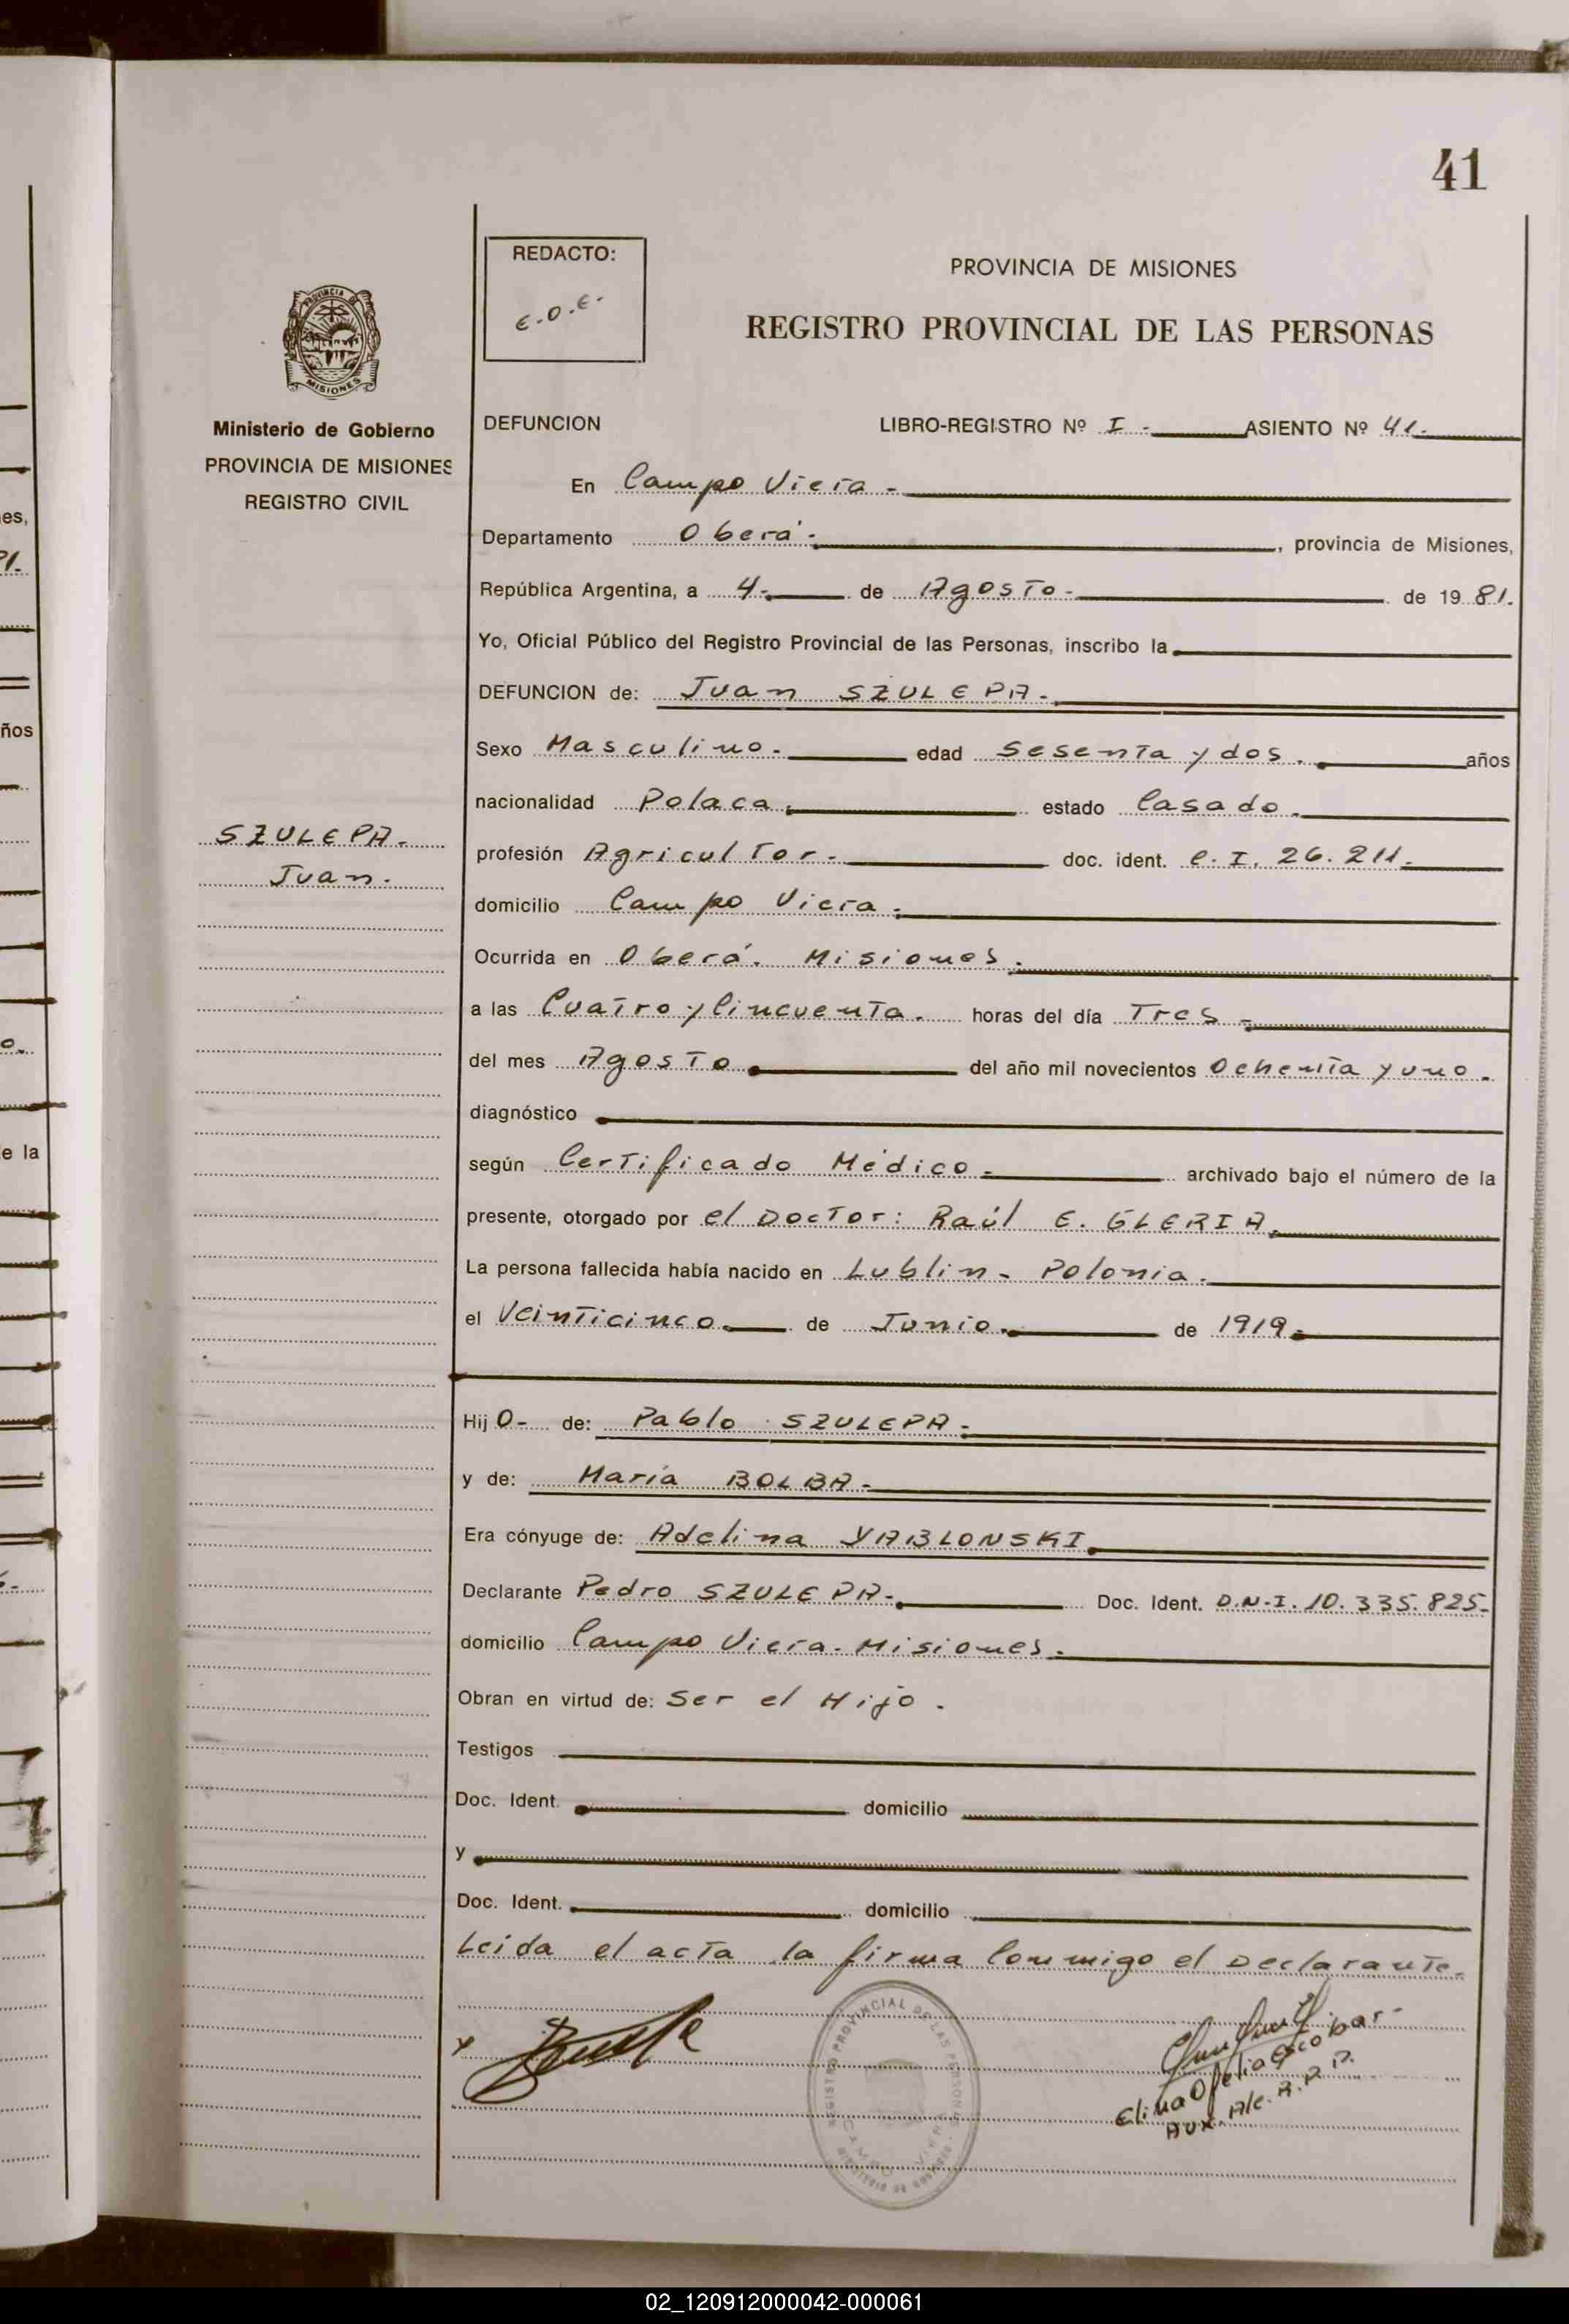 41
REDACTO:
E.O.E.
PROVINCIA DE MISIONES
REGISTRO PROVINCIAL DE LAS PERSONAS
PROVINCIA DE
MISIONES
Ministerio de Gobierno
PROVINCIA DE MISIONES
REGISTRO CIVIL
SZULEPA.
Juan.
DEFUNCION LIBRO-REGISTRO Nº I - ASIENTO Nº 41.
En Campo Viera -
Departamento Oberá. , provincia de Misiones,
República Argentina, a 4- de Agosto- de 1981.
Yo, Oficial Público del Registro Provincial de las Personas, inscribo la
DEFUNCION de: Juan SZULEPA.
Sexo Masculino. edad Sesenta y dos. años
nacionalidad Polaca. estado Casado.
profesión Agricultor. doc. ident. C.I. 26.211.
domicilio Campo Viera.
Ocurrida en Oberá. Misiones.
a las Cuatro y Cincuenta. horas del día Tres -
del mes Agosto del año mil novecientos Ochenta y uno.
diagnóstico
según Certificado Médico. archivado bajo el número de la
presente, otorgado por el Doctor: Raúl E. GLERIA.
La persona fallecida había nacido en Lublin - Polonia.
el Veinticinco. de Junio. de 1919.
Hijo- de: Pablo SZULEPA.
y de: María BOLBA.
Era cónyuge de: Adelina YABLONSKI.
Declarante Pedro SZULEPA. Doc. Ident. D.N.I. 10.335.825-
domicilio Campo Viera. Misiones.
Obran en virtud de: Ser el Hijo.
Testigos
Doc. Ident. domicilio
y
Doc. Ident. domicilio
Leida el acta la firma Conmigo el Declarante.
REGISTRO PROVINCIAL DE LAS PERSONAS
CAMPO VIERA
Elina Ofelia Escobar-
Aux. A/c. R.P.P.
es,
ños
e la
02_120912000042-000061